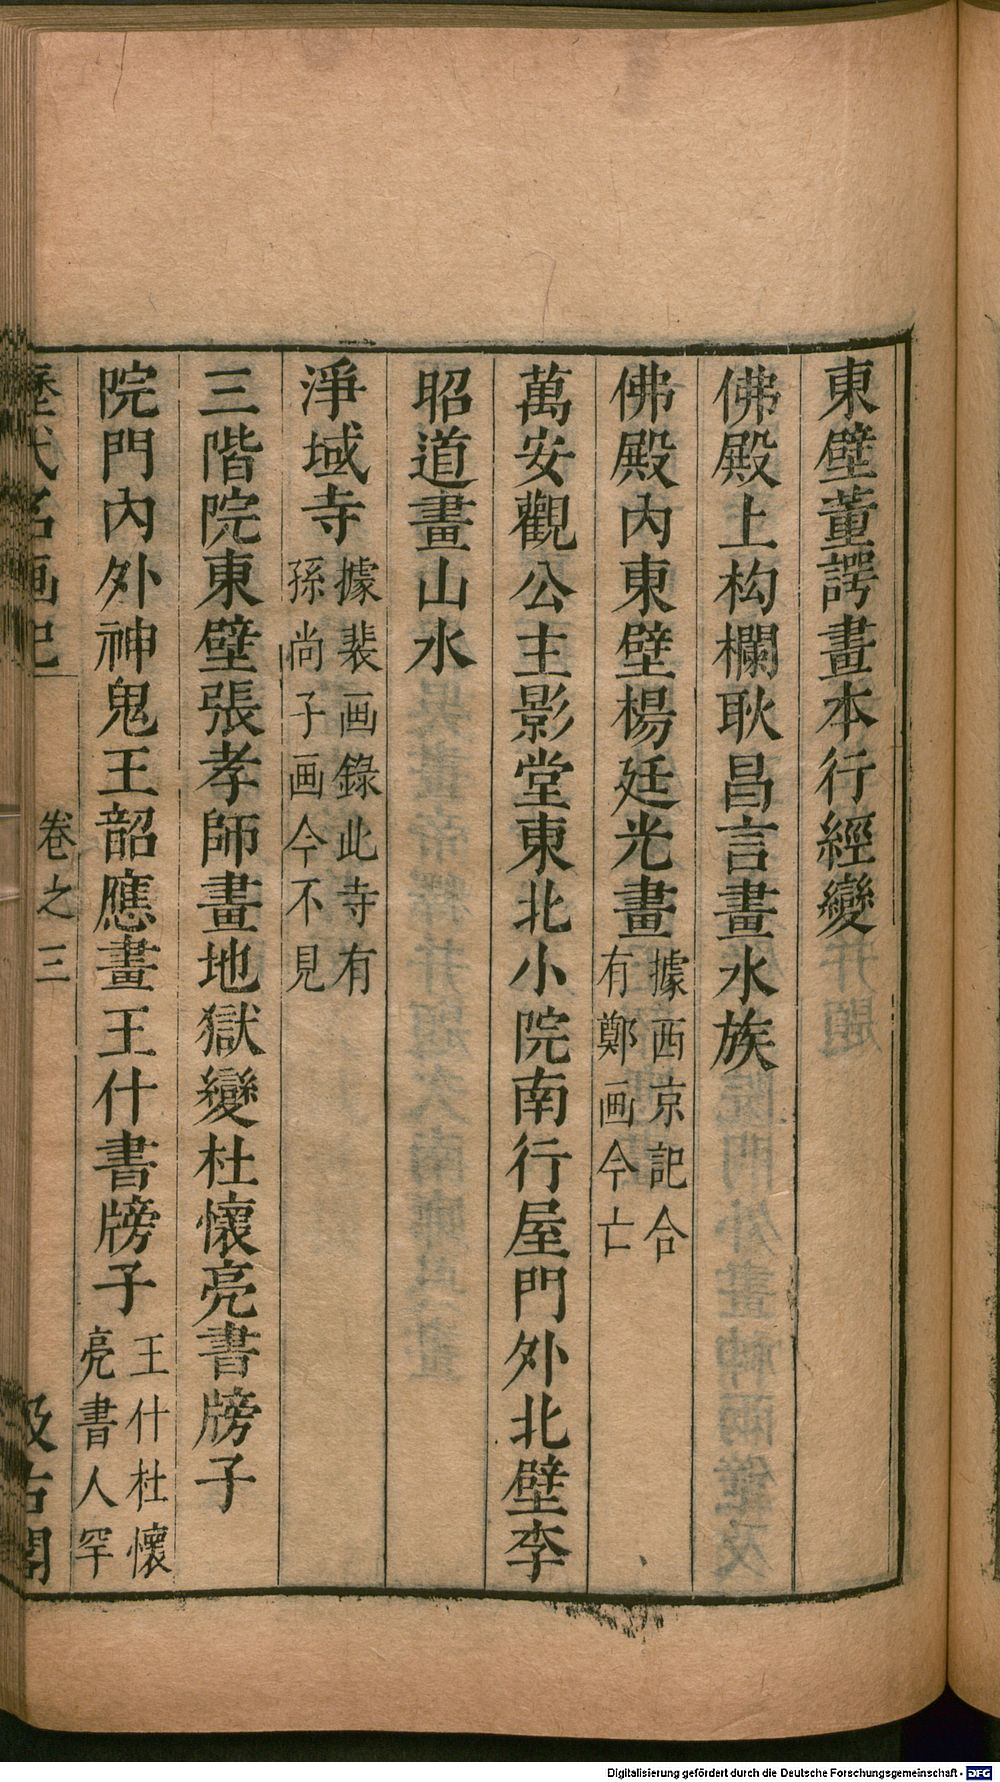 東壁董諤畫本行經變
佛殿上构欄耿昌言畫水族
佛殿內東壁楊廷光畫據西京記合有鄭画今亡
萬安觀公主影堂東北小院南行屋門外北壁李
昭道畫山水
淨域寺據裴画錄此寺有孫尚子画今不見
三階院東壁張孝師畫地獄變杜懷亮書牓子
院門內外神鬼王韶應畫王什書牓子王什杜懷亮書人罕
歷代名画記 卷之三 汲古閣
Digitalisierung gefördert durch die Deutsche Forschungsgemeinschaft - DFG